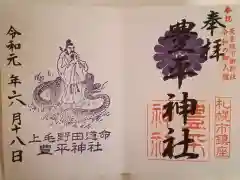 奉拝
豊平神社
札幌市鎮座
令和元年六月十八日
上毛野田道命
豊平神社